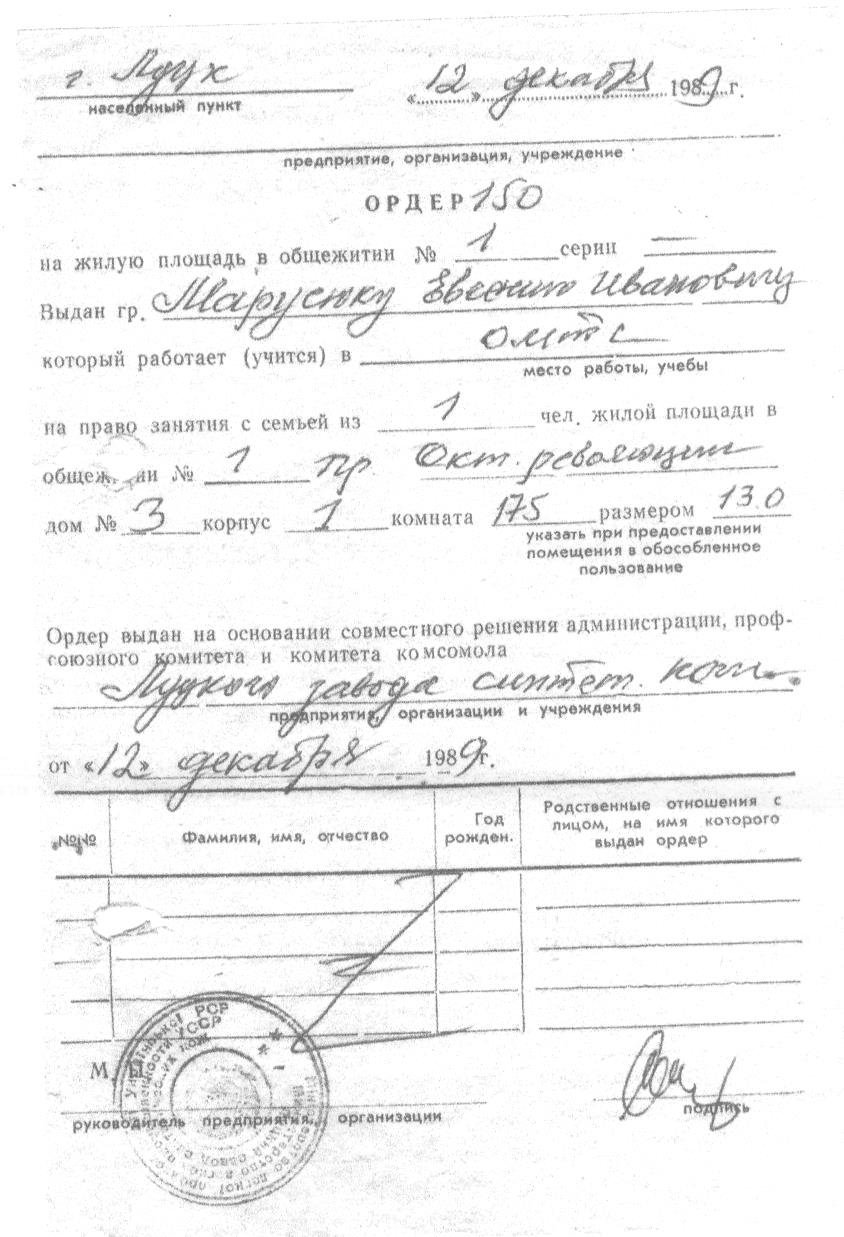 г. Луцк
населенный пункт
«12» декабря 1989 г.
предприятие, организация, учреждение
ОРДЕР 150
на жилую площадь в общежитии № 1 серии —
Выдан гр. Марусику Евгению Ивановичу
который работает (учится) в ОМТС
место работы, учебы
на право занятия с семьей из 1 чел. жилой площади в
общеж. ии № 1 пр. Окт. революции
дом № 3 корпус 1 комната 175 размером 13.0
указать при предоставлении
помещения в обособленное
пользование
Ордер выдан на основании совместного решения администрации, проф-
союзного комитета и комитета комсомола
Луцкого завода синтет. кож
предприятия, организации и учреждения
от «12» декабря 1989г.
№№ Фамилия, имя, отчество Год рожден. Родственные отношения с лицом, на имя которого выдан ордер
М. П.
руководитель предприятия, организации
подпись